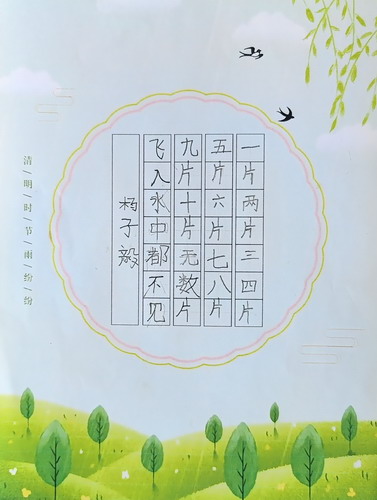 一片两片三四片
五片六片七八片
九片十片无数片
飞入水中都不见
杨子毅
清明时节雨纷纷